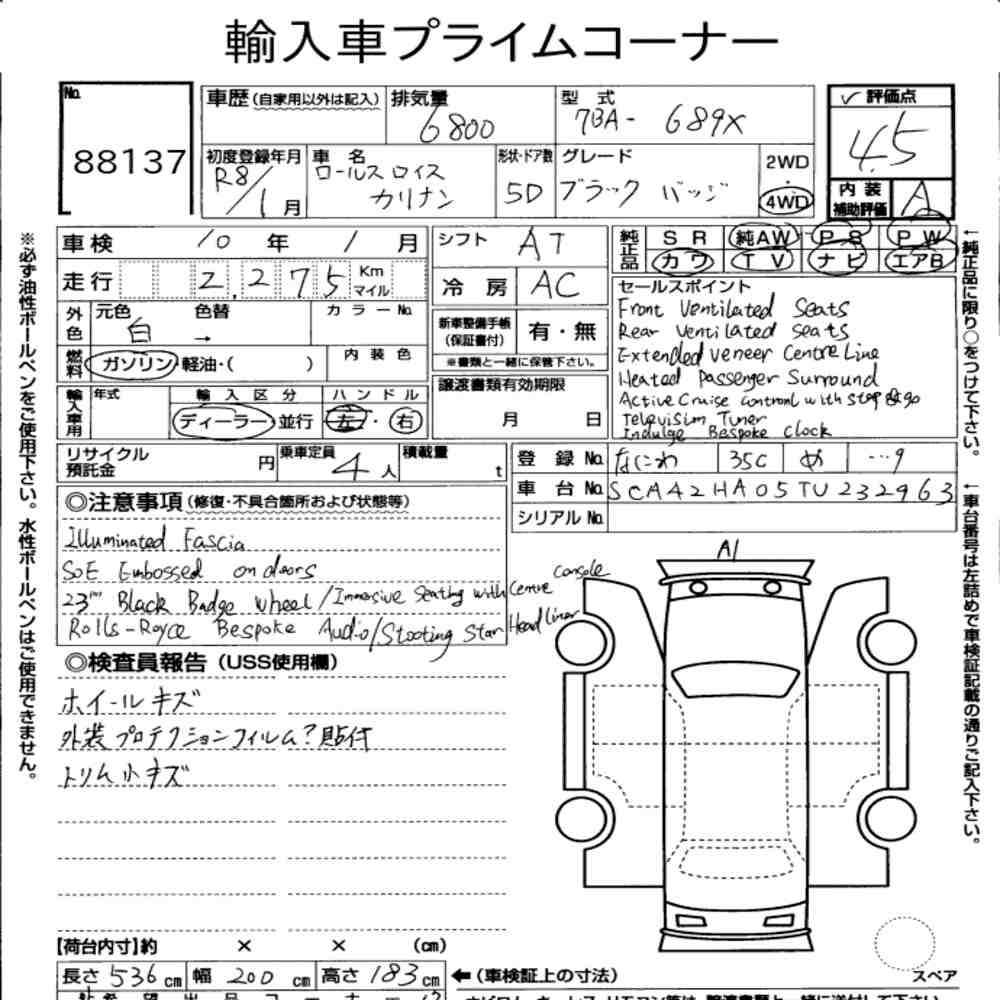 輸入車プライムコーナー
No. 88137
車歴(自家用以外は記入)
排気量 6800
型式 7BA- 689X
評価点 4.5
初度登録年月 R8/1月
車名 ロールスロイス カリナン
形状・ドア数 5D
グレード ブラック バッジ
2WD・4WD
内装補助評価 A
車検 10年 1月
シフト AT
純正品 SR 純AW PS PW
カワ TV ナビ エアB
走行 2,275 Km マイル
冷房 AC
外色 元色 白 色替 → カラーNo.
新車整備手帳(保証書付) 有・無
※書類と一緒に保管下さい。
燃料 ガソリン・軽油・( ) 内装色
譲渡書類有効期限 月 日
輸入車用 年式 輸入区分 ディーラー・並行 ハンドル 左・右
セールスポイント
Front Ventilated Seats
Rear Ventilated Seats
Extended Veneer Centre Line
Heated Passenger Surround
Active Cruise control with stop & go
Television Tuner
Indulge Bespoke Clock
リサイクル預託金 円 乗車定員 4人 積載量 t
登録No. なにわ 35C め ・・・9
車台No. SCA42HA05TU232963
シリアルNo.
◎注意事項(修復・不具合箇所および状態等)
Illuminated Fascia
SoE Embossed on doors
23" Black Badge wheel/Immersive Seating with Centre Console
Rolls-Royce Bespoke Audio/Shooting Star Headliner
◎検査員報告(USS使用欄)
ホイールキズ
外装プロテクションフィルム?貼付
トリム小キズ
A1
【荷台内寸】約 × × (cm)
長さ 536 cm 幅 200 cm 高さ 183 cm ←(車検証上の寸法)
スペア
※必ず油性ボールペンをご使用下さい。水性ボールペンはご使用できません。
←純正品に限り○をつけて下さい。
←車台番号は左詰めで車検証記載の通りご記入下さい。